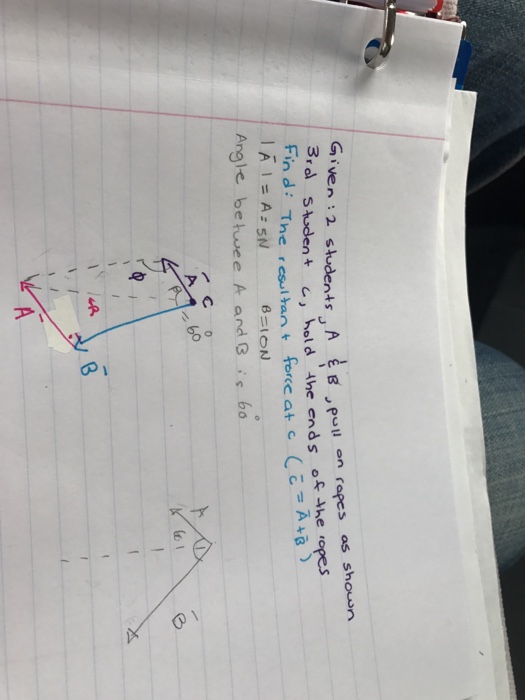 Given: 2 students, A & B, pull on ropes as shown
3rd student C, hold the ends of the ropes
Find: The resultant force at C (C̄ = Ā + B̄)
|Ā| = A = 5N B = 10N
Angle betwee A and B is 60°
C̄
Ā
= 60°
Φ
R
B̄
Ā
A
60
B̄